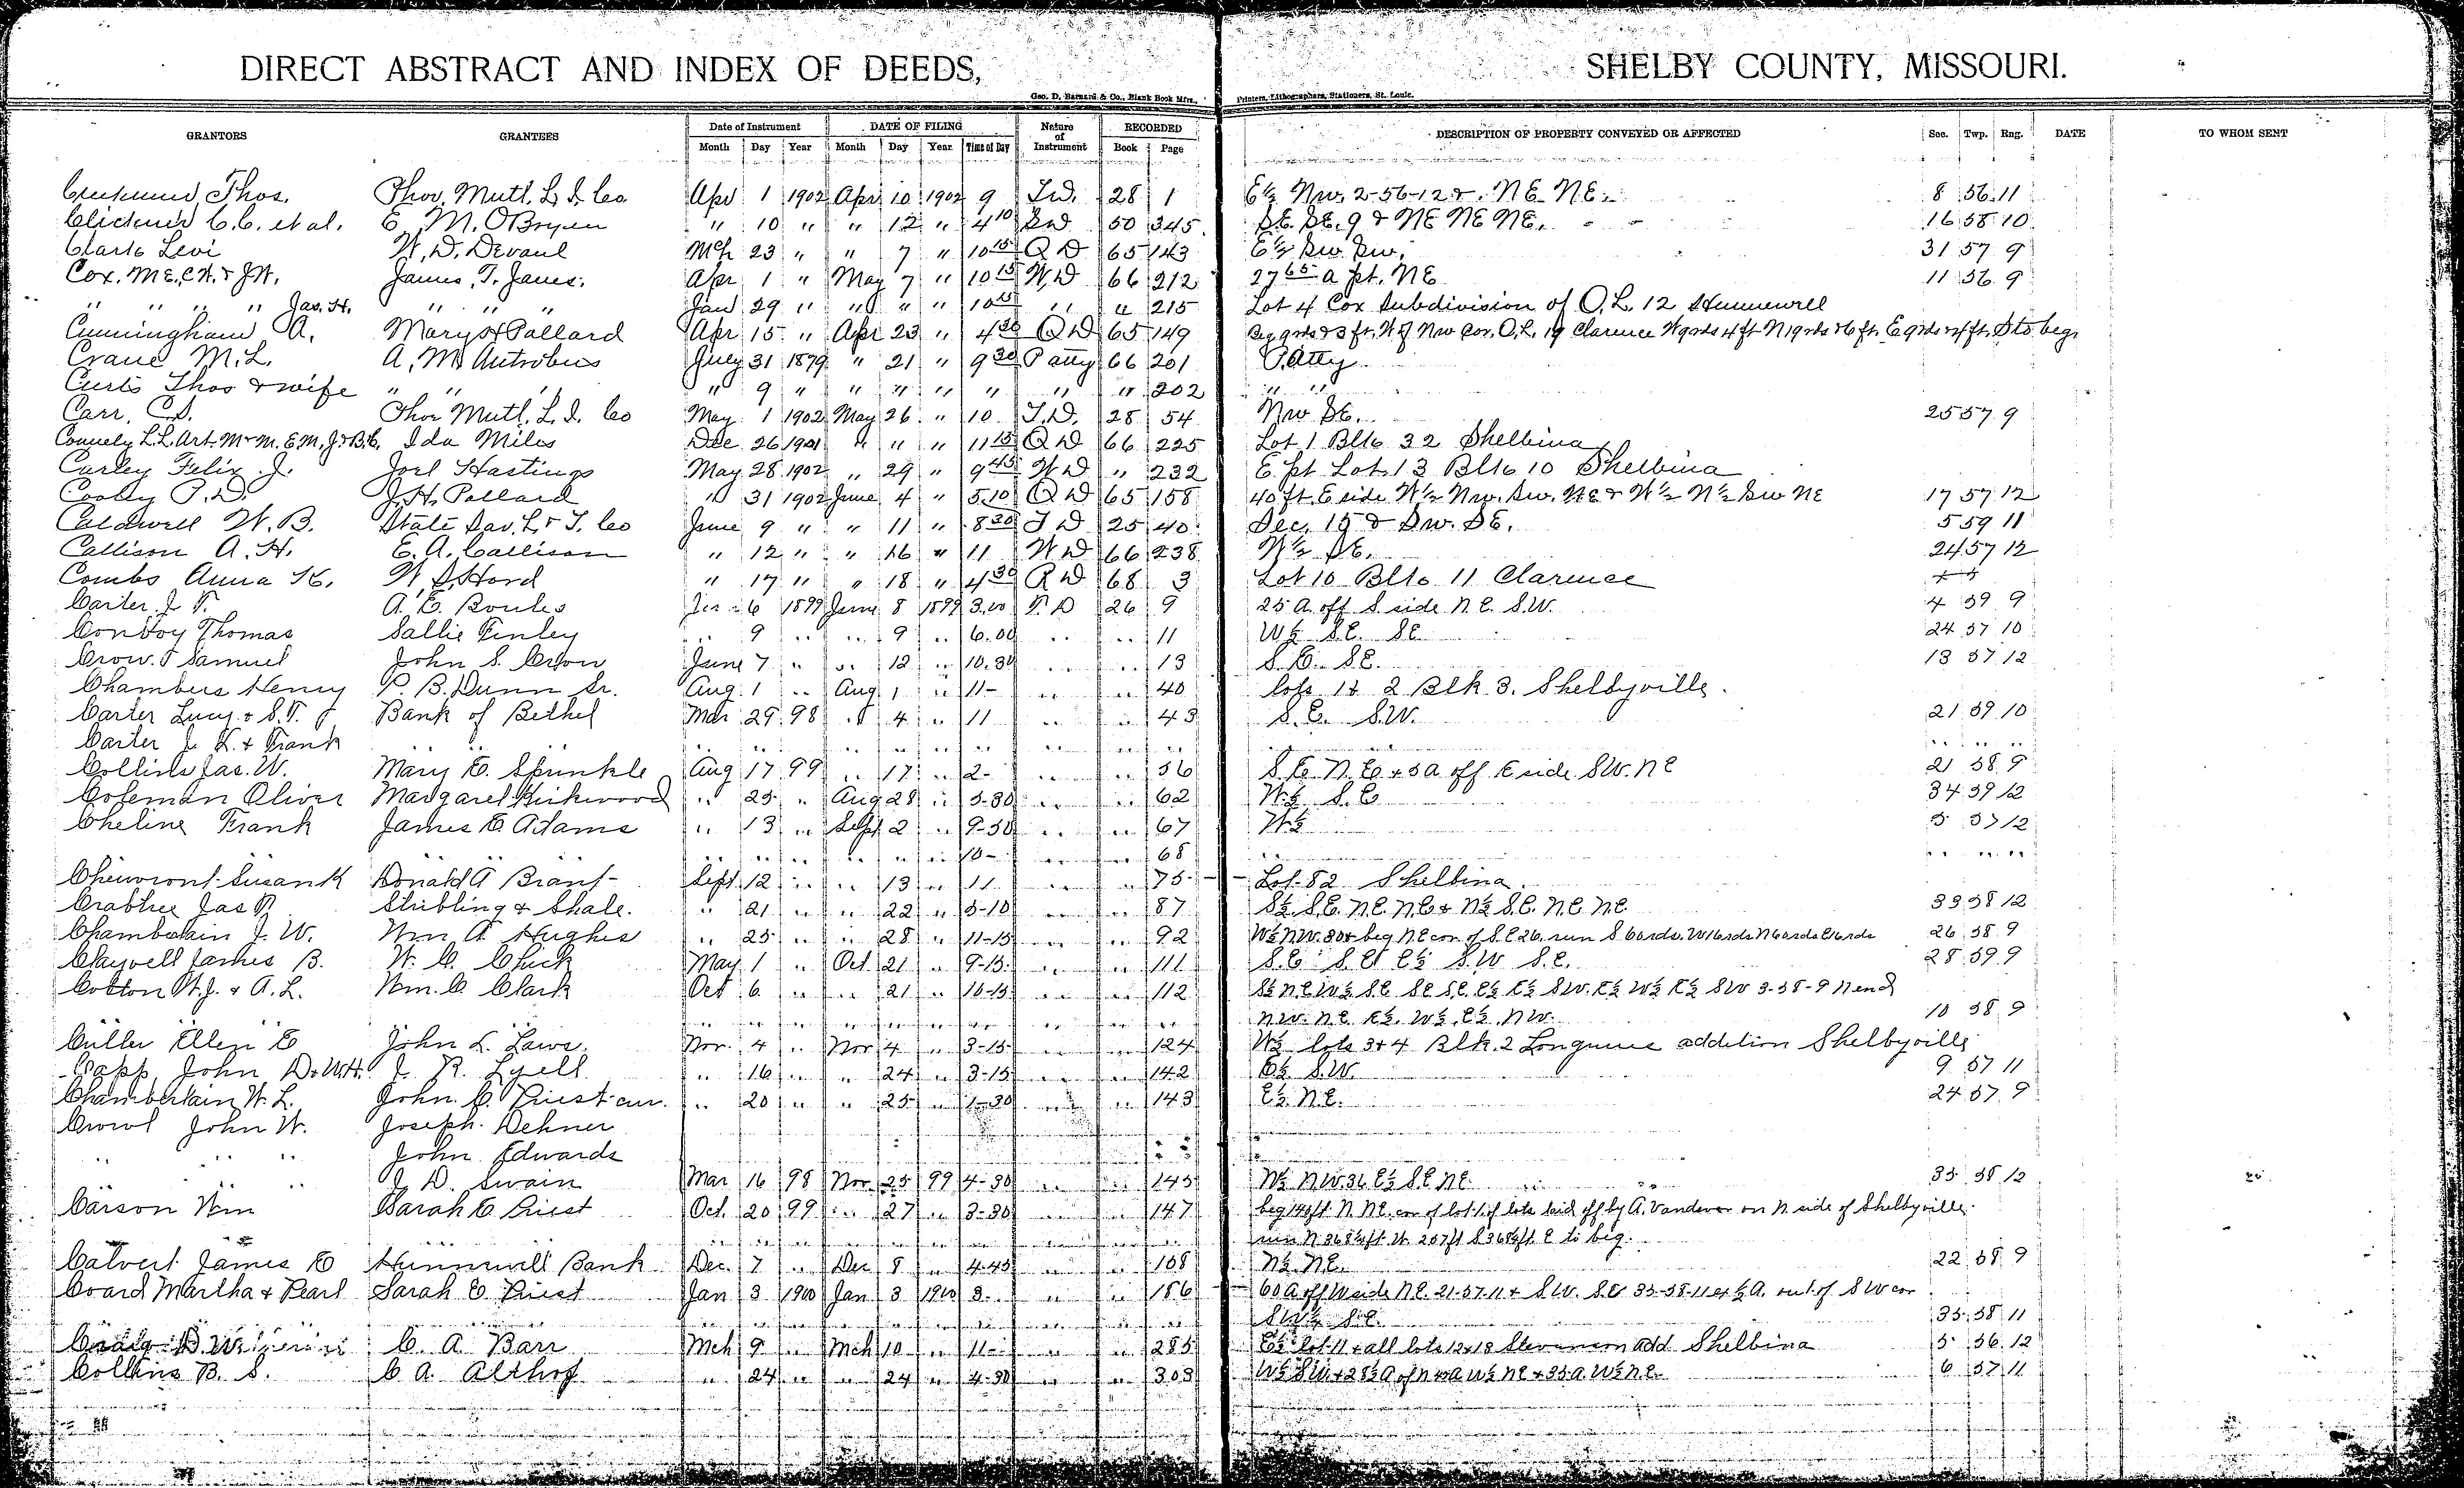 DIRECT ABSTRACT AND INDEX OF DEEDS, SHELBY COUNTY, MISSOURI.
Geo. D. Barnard & Co., Blank Book Mfrs., Printers, Lithographers, Stationers, St. Louis.
GRANTORS GRANTEES Date of Instrument DATE OF FILING Nature of Instrument RECORDED DESCRIPTION OF PROPERTY CONVEYED OR AFFECTED Sec. Twp. Rng. DATE TO WHOM SENT
Month Day Year Month Day Year Time of Day Book Page
Thos. Mutl. L. I. Co Apr 1 1902 Apr 10 1902 9 28 1 E½ Nw. 2-56-12 & NE NE. 8 56 11
C.C. et al. E. M. OBryen " 10 " " 12 " 4 10 50 345 SE. SE. 9 & NE NE NE. 16 58 10
Clark Levi W. D. Devaul Mch 23 " " 7 " 10 15 Q D 65 143 E½ Sw Sw. 31 57 9
Cox. M E, C W. & J W. James T. Janes. Apr 1 " May 7 " 10 15 W D 66 212 27 65 a pt. NE 11 56 9
" " " " Jas. H. " " " Jan 29 " " " " 10 15 " " 215 Lot 4 Cox Subdivision of O. L. 12 Hunnewell
Cunningham A. Mary H Pollard Apr 15 " Apr 23 " 4 30 Q D 65 149 Beg 9rds & 3 ft. W of Nw Cor. O. L. 19 Clarence W 9rds 4 ft N 19rds & 6 ft. E 9rds & 4 ft. S to beg.
Crane M. L. A. M. Autrobus July 31 1879 " 21 " 9 30 P atty 66 201 P. Atty
Curts Thos & wife " " " " 9 " " " " " " " 202 " "
Carr, C. S. Thos Mutl. L. I. Co May 1 1902 May 26 " 10 T. D. 28 54 Nw SE. 25 57 9
Connely L. L. Art. M & M. E M, J & B. C. Ida Miles Dec 26 1901 " " " 11 15 Q D 66 225 Lot 1 Blk 32 Shelbina
Curley Felix J. Joel Hastings May 28 1902 " 29 " 9 45 W D " 232 E pt Lot 13 Blk 10 Shelbina
Cooley P. D. J. H. Pollard " 31 1902 June 4 " 5 10 Q D 65 158 40 ft. E side W½ Nw. Sw. NE & W½ N½ Sw NE 17 57 12
Caldwell W. B. State Sav. L & T. Co June 9 " " 11 " 8 30 T D 25 40 Sec. 15 & Sw. SE. 5 59 11
Callison A. H. E. A. Callison " 12 " " 16 " 11 W D 66 238 W½ SE. 24 57 12
Combs Anna K. W. S. Hord " 17 " " 18 " 4 30 R D 68 3 Lot 10 Blk 11 Clarence
Carter J. T. A. E. Boules 6 1899 June 8 1899 3.00 T. D 26 9 25 A off S side N.E. S.W. 4 59 9
Conboy Thomas Sallie Finley " 9 " " 9 " 6.00 " " 11 W½ S.E. SE 24 57 10
Crow. T Samuel John S. Crow June 7 " " 12 " 10.30 " " 13 S.E. S.E. 13 57 12
Chambers Henry P. B. Dunn Sr. Aug. 1 " Aug 1 " 11- " " 40 lots 1 & 2 Blk 3. Shelbyville.
Carter Lucy & S. T. Bank of Bethel Mar 29 98 " 4 " 11 " " 43 S.E. S.W. 21 59 10
Carter J. K. & Frank " " " " " " " " " " " " " " "
Collins Jas. W. Mary E. Sprinkle Aug 17 99 " 17 " 2- " " 56 S.E. N.E. & 5 a off E side SW. NE 21 58 9
Coleman Oliver Margaret Kirkwood " 25 " Aug 28 " 3-30 " " 62 W½ S.E 34 59 12
Cheline Frank James E Adams " 13 " Sept 2 " 9-30 " " 67 W½ 5 57 12
" " " " " " 10- " " 68 " " " "
Susan K Donald A Brant Sept 12 " " 13 " 11 " " 75 Lot 82 Shelbina
Crabtree Jas R Stribling & Shale. " 21 " " 22 " 3-10 " " 87 S½ S.E. N.E. N.E & N½ S.E. N.E. NE. 33 58 12
Chamberlain J. W. Wm A Hughes " 25 " " 28 " 11-15 " " 92 W½ N.W. 30 & beg N.E cor. of S.E 26. run S 60rds. W 16rds N 60rds E 16rds 26 58 9
Claywell James B. W. C. Chick May 1 " Oct 21 " 9-15 " " 111 S.E. S.E E½ S.W S.E. 28 59 9
Cotton W. J. & A. L. Wm. C. Clark Oct 6 " " 21 " 10-15 " " 112 S½ N.E W½ S.E SE S.E. E½ E½ S.W. E½ W½ E½ S.W 3-58-9 N end
" " " " " " " " " " N.W. N.E. E½. W½. E½. N.W. 10 58 9
Culler Ellen E John L. Laws. Nov. 4 " Nov 4 " 3-15 " " 124 W½ lots 3 & 4 Blk. 2 Longmires addition Shelbyville
Capp John D. & W. H. J. R. Lyell " 16 " " 24 " 3-15 " " 142 E½ S.W. 9 57 11
Chamberlain W. L. John. C. Priest " 20 " " 25 " 1-30 " " 143 E½ N.E. 24 57 9
John W. Joseph Dehner
" " " John Edwards
" " J. D. Swain Mar 16 98 Nov. 25 99 4-30 " " 145 W½ N.W. 36 E½ S.E. N.E. 35 58 12
Carson Wm Sarah E Priest Oct. 20 99 " 27 " 3-30 " " 147 beg 149 ft. N N.E. cor of lot 1 of lots laid off by A. Vandever on N side of Shelbyville.
run N 368½ ft W. 207 ft S 368½ ft. E to beg.
Calvert James E Hunnewell Bank Dec. 7 " Dec 8 " 4-45 " " 168 N½ N.E. 22 58 9
Coard Martha & Pearl Sarah E Priest Jan 3 1900 Jan 3 1900 3- " " 186 60 A off W side N.E. 21-57-11 & S.W. S.E 35-58-11 ex ½ A. out of S W cor
S.W¼ S.E. 35 58 11
C. A Barr Mch 9 " Mch 10 " 11- " " 285 E½ lot 11 & all lots 12 & 13 Stevenson add Shelbina 5 56 12
Collins B. S. C A. Althof " 24 " " 24 " 4-30 " " 303 6 57 11